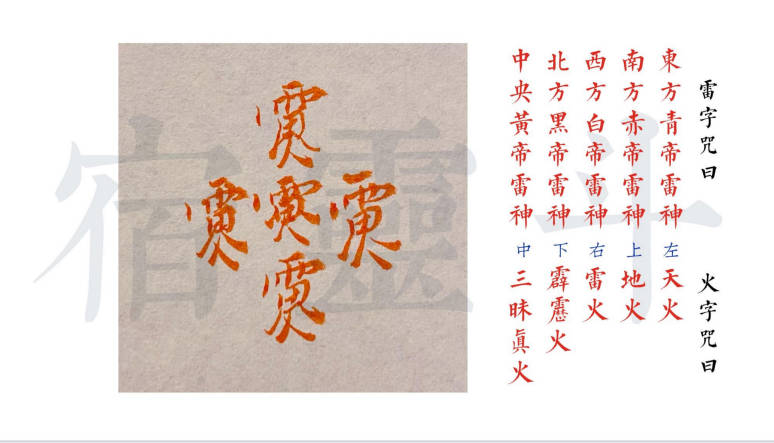 雷字咒曰 火字咒曰
東方青帝雷神 左 天火
南方赤帝雷神 上 地火
西方白帝雷神 右 雷火
北方黑帝雷神 下 霹靂火
中央黃帝雷神 中 三昧眞火
斗靈宿